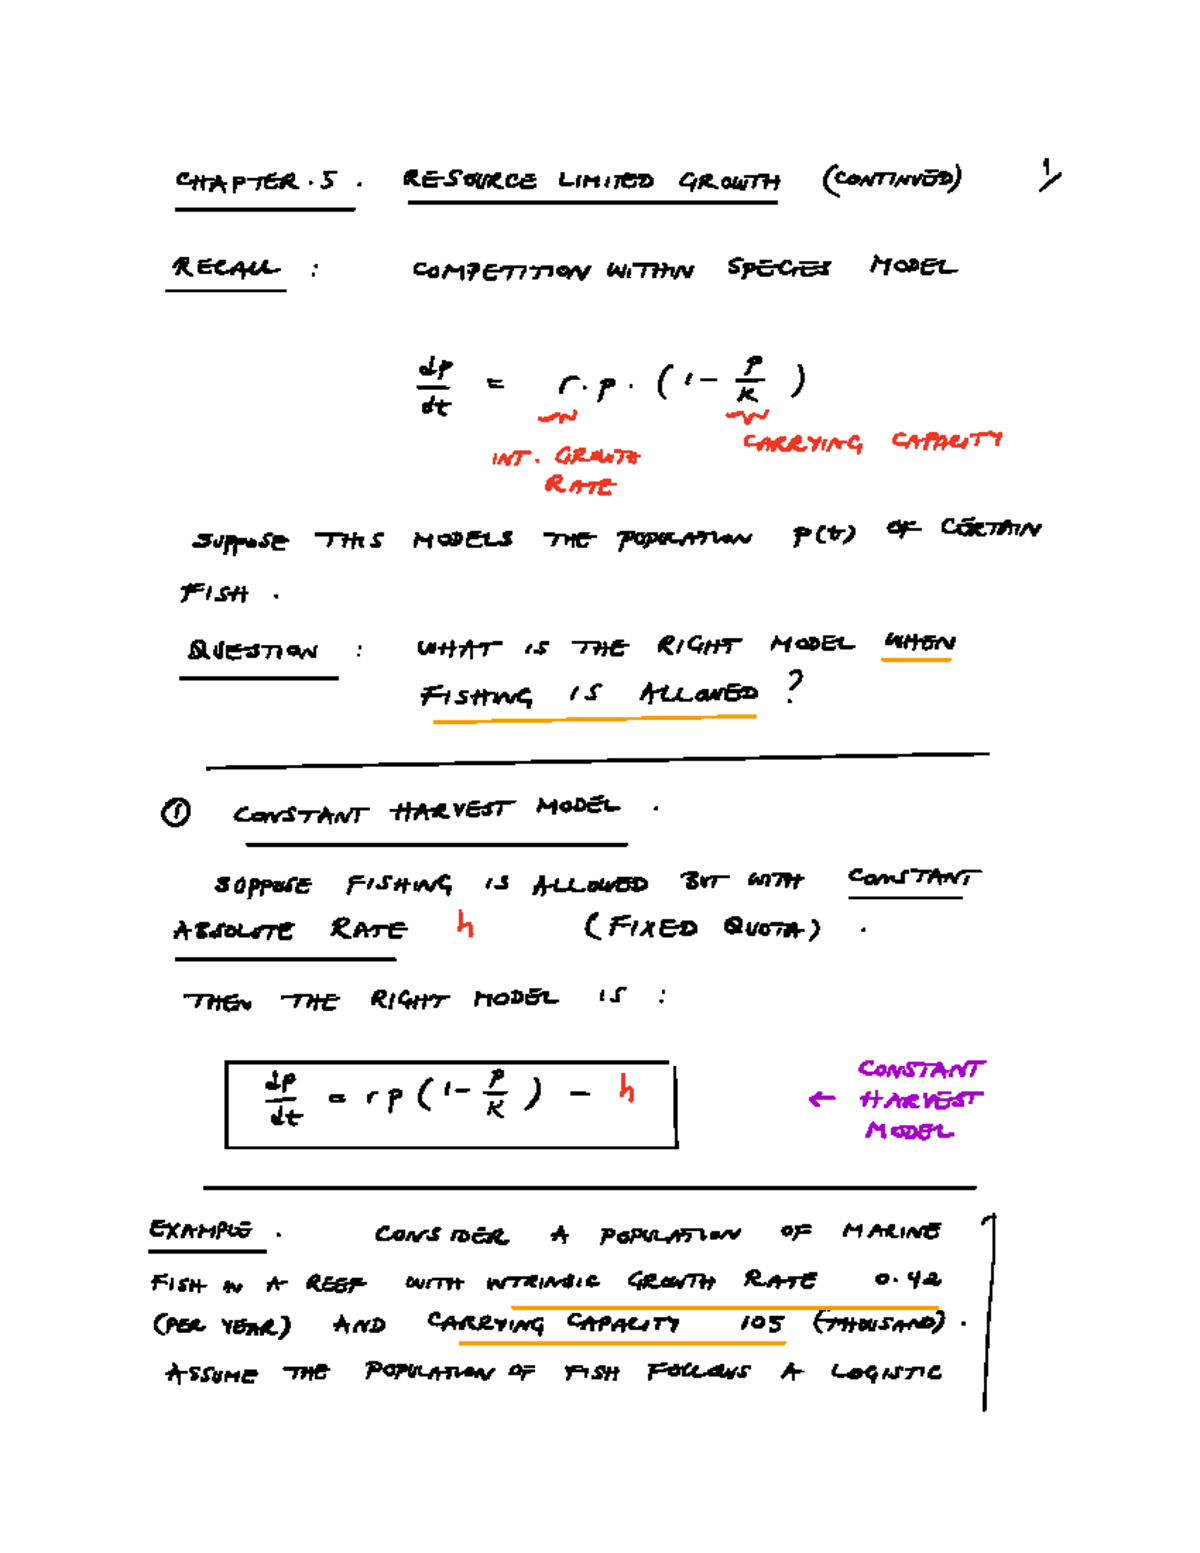 CHAPTER.5. RESOURCE LIMITED GROWTH (CONTINUED) 1/
RECALL : COMPETITION WITHIN SPECIES MODEL
dp/dt = r.p.(1 - p/K)
INT. GROWTH RATE
CARRYING CAPACITY
SUPPOSE THIS MODELS THE POPULATION P(t) OF CERTAIN
FISH.
QUESTION : WHAT IS THE RIGHT MODEL WHEN
FISHING IS ALLOWED ?
① CONSTANT HARVEST MODEL.
SUPPOSE FISHING IS ALLOWED BUT WITH CONSTANT
ABSOLUTE RATE h (FIXED QUOTA).
THEN THE RIGHT MODEL IS :
dp/dt = rp(1 - p/K) - h
← CONSTANT
HARVEST
MODEL
EXAMPLE. CONSIDER A POPULATION OF MARINE
FISH IN A REEF WITH INTRINSIC GROWTH RATE 0.42
(PER YEAR) AND CARRYING CAPACITY 105 (THOUSAND).
ASSUME THE POPULATION OF FISH FOLLOWS A LOGISTIC